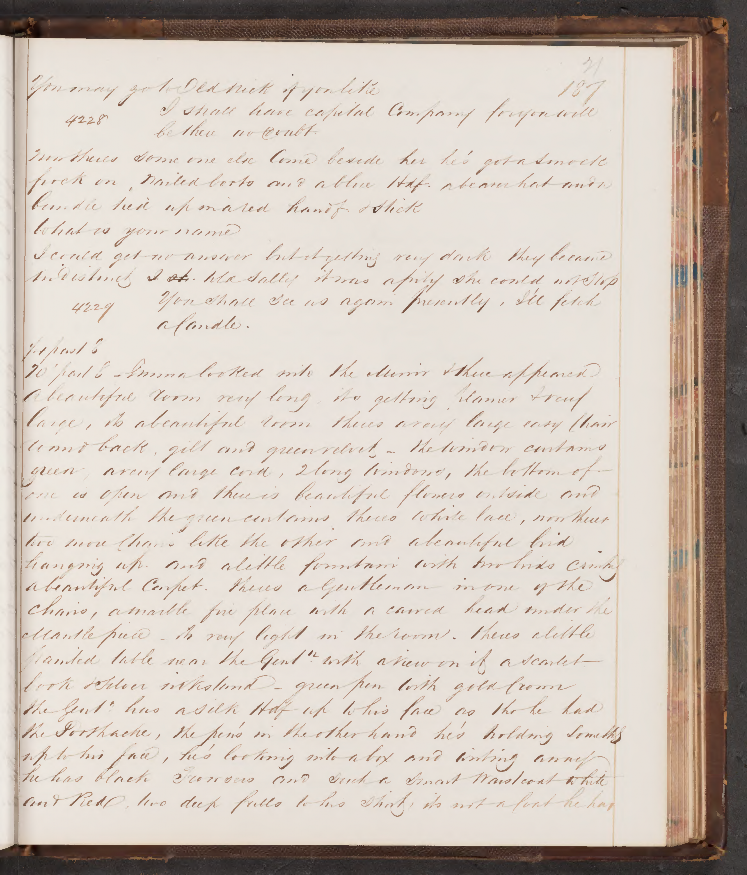 21
You may go to Old Nick if you like 187
4228 I shall have capital Company for you will
be there no doubt
Now theres some one else Come beside her he's got a Smock
frock on, nailed boots and a blue Hdf. a beaver hat and a
bundle tied up in a red handf & Stick
What is your name
I could get no answer but it getting very dark they became
indistinct I st. told Sally it was a pity she could not Stop
4229 You shall See us again presently, I'll fetch
a Candle.
½ past 6
½ past 6 Emma looked into the Mirror & there appeared
a beautiful Room very long its getting Clearer & very
large, its a beautiful room theres a very large easy Chair
round back, gilt and green velvet – the window curtains
green, a very large cord, 2 long windows, the bottom of
one is open and there is beautiful flowers outside and
underneath the green curtains theres white lace, now theres
two more Chairs like the other and a beautiful bird
hanging up. and a little fountain with two birds
a beautiful Carpet. theres a Gentleman in one of the
Chairs, a marble fire place with a carved head under the
Mantle piece – its very light in the room. theres a little
painted table near the Gentn with a view on it a scarlet
book & Silver inkstand – green pen with gold Crown
the Gentn has a silk Hdf up to his face as tho he had
the Toothache, the pen's in the other hand he's holding
up to his face, he's looking into a box and writing away
he has black Trowsers and such a Smart Waistcoat White
and Red, two deep frills to his Shirt, its not a Coat he has